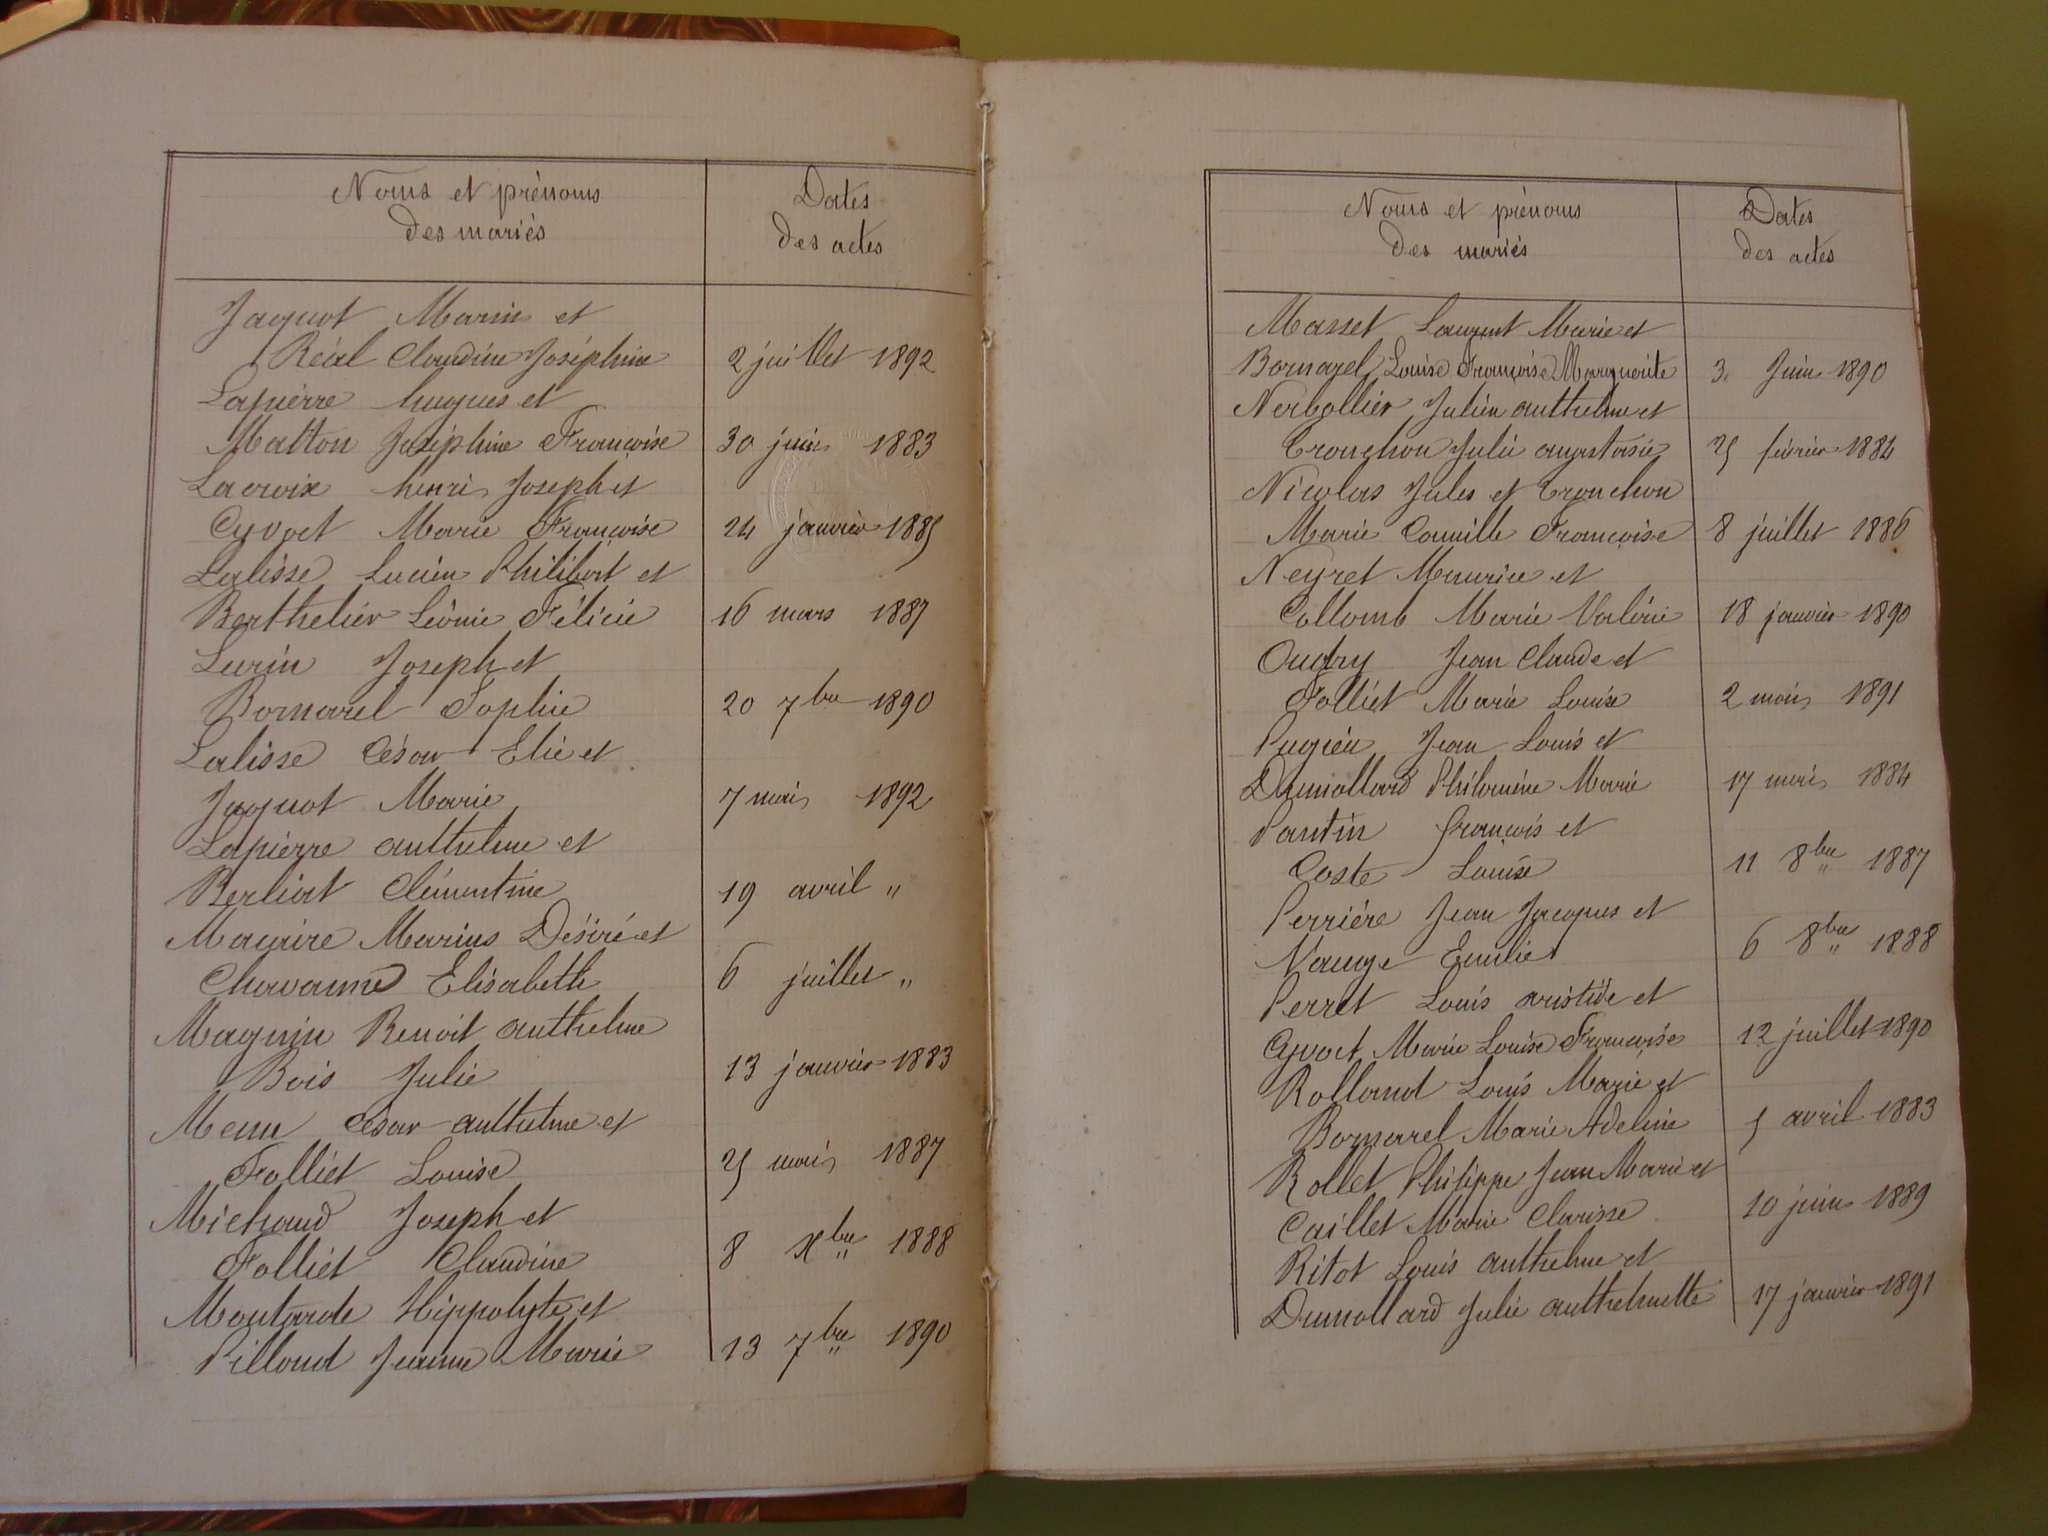 Noms et prénoms
des mariés
Dates
des actes
Jaquot Marin et
Réal Claudine Joséphine 2 juillet 1892
Lapierre hugues et
Matton Joséphine Françoise 30 juin 1883
Lacroix henri Joseph et
Cyvoct Marie Françoise 24 janvier 1885
Lalisse Lucien Philibert et
Berthelier Léonie Félicie 16 mars 1887
Lurin Joseph et
Bornarel Sophie 20 7bre 1890
Lalisse César Elie et
Jaquot Marie 7 mai 1892
Lapierre anthelme et
Berliat Clémentine 19 avril "
Magnire Marius Désiré et
Chavanne Elisabeth 6 juillet "
Magnin Benoit anthelme
Bois Julie 13 janvier 1883
Menu César anthelme et
Folliet Louise 25 mai 1887
Michaud Joseph et
Folliet Claudine 8 Xbre 1888
Moutarde Hippolyte et
Pilloud Jeanne Marie 13 7bre 1890
Noms et prénoms
des mariés
Dates
des actes
Masset Laurent Marie et
Bornarel Louise Françoise Marguerite 3 Juin 1890
Nerbollier Julien anthelme et
Tronchon Julie anastasie 25 février 1884
Nicolas Jules et Tronchon
Marie Camille Françoise 8 juillet 1886
Neyret Maurice et
Collomb Marie Valérie 18 janvier 1890
Oudry Jean Claude et
Folliet Marie Louise 2 mai 1891
Pugieu Jean Louis et
Dumollard Philomène Marie 17 mai 1884
Pantin françois et
Coste Louise 11 8bre 1887
Perrière Jean Jacques et
Vauge Emilie 6 8bre 1888
Perret Louis aristide et
Cyvoct Marie Louise Françoise 12 juillet 1890
Rolland Louis Marie et
Bornarel Marie Adeline 5 avril 1883
Rollet Philippe Jean Marie et
Caillet Marie Clarisse 10 juin 1889
Ritot Louis anthelme et
Dumollard Julie anthelmette 17 janvier 1891